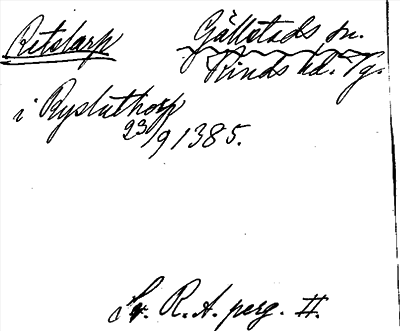 Retstarp Gällstads sn.
Kinds hd. Vg.
i Rystathorp
23/9 1385.
Sv. R. A. perg. II.